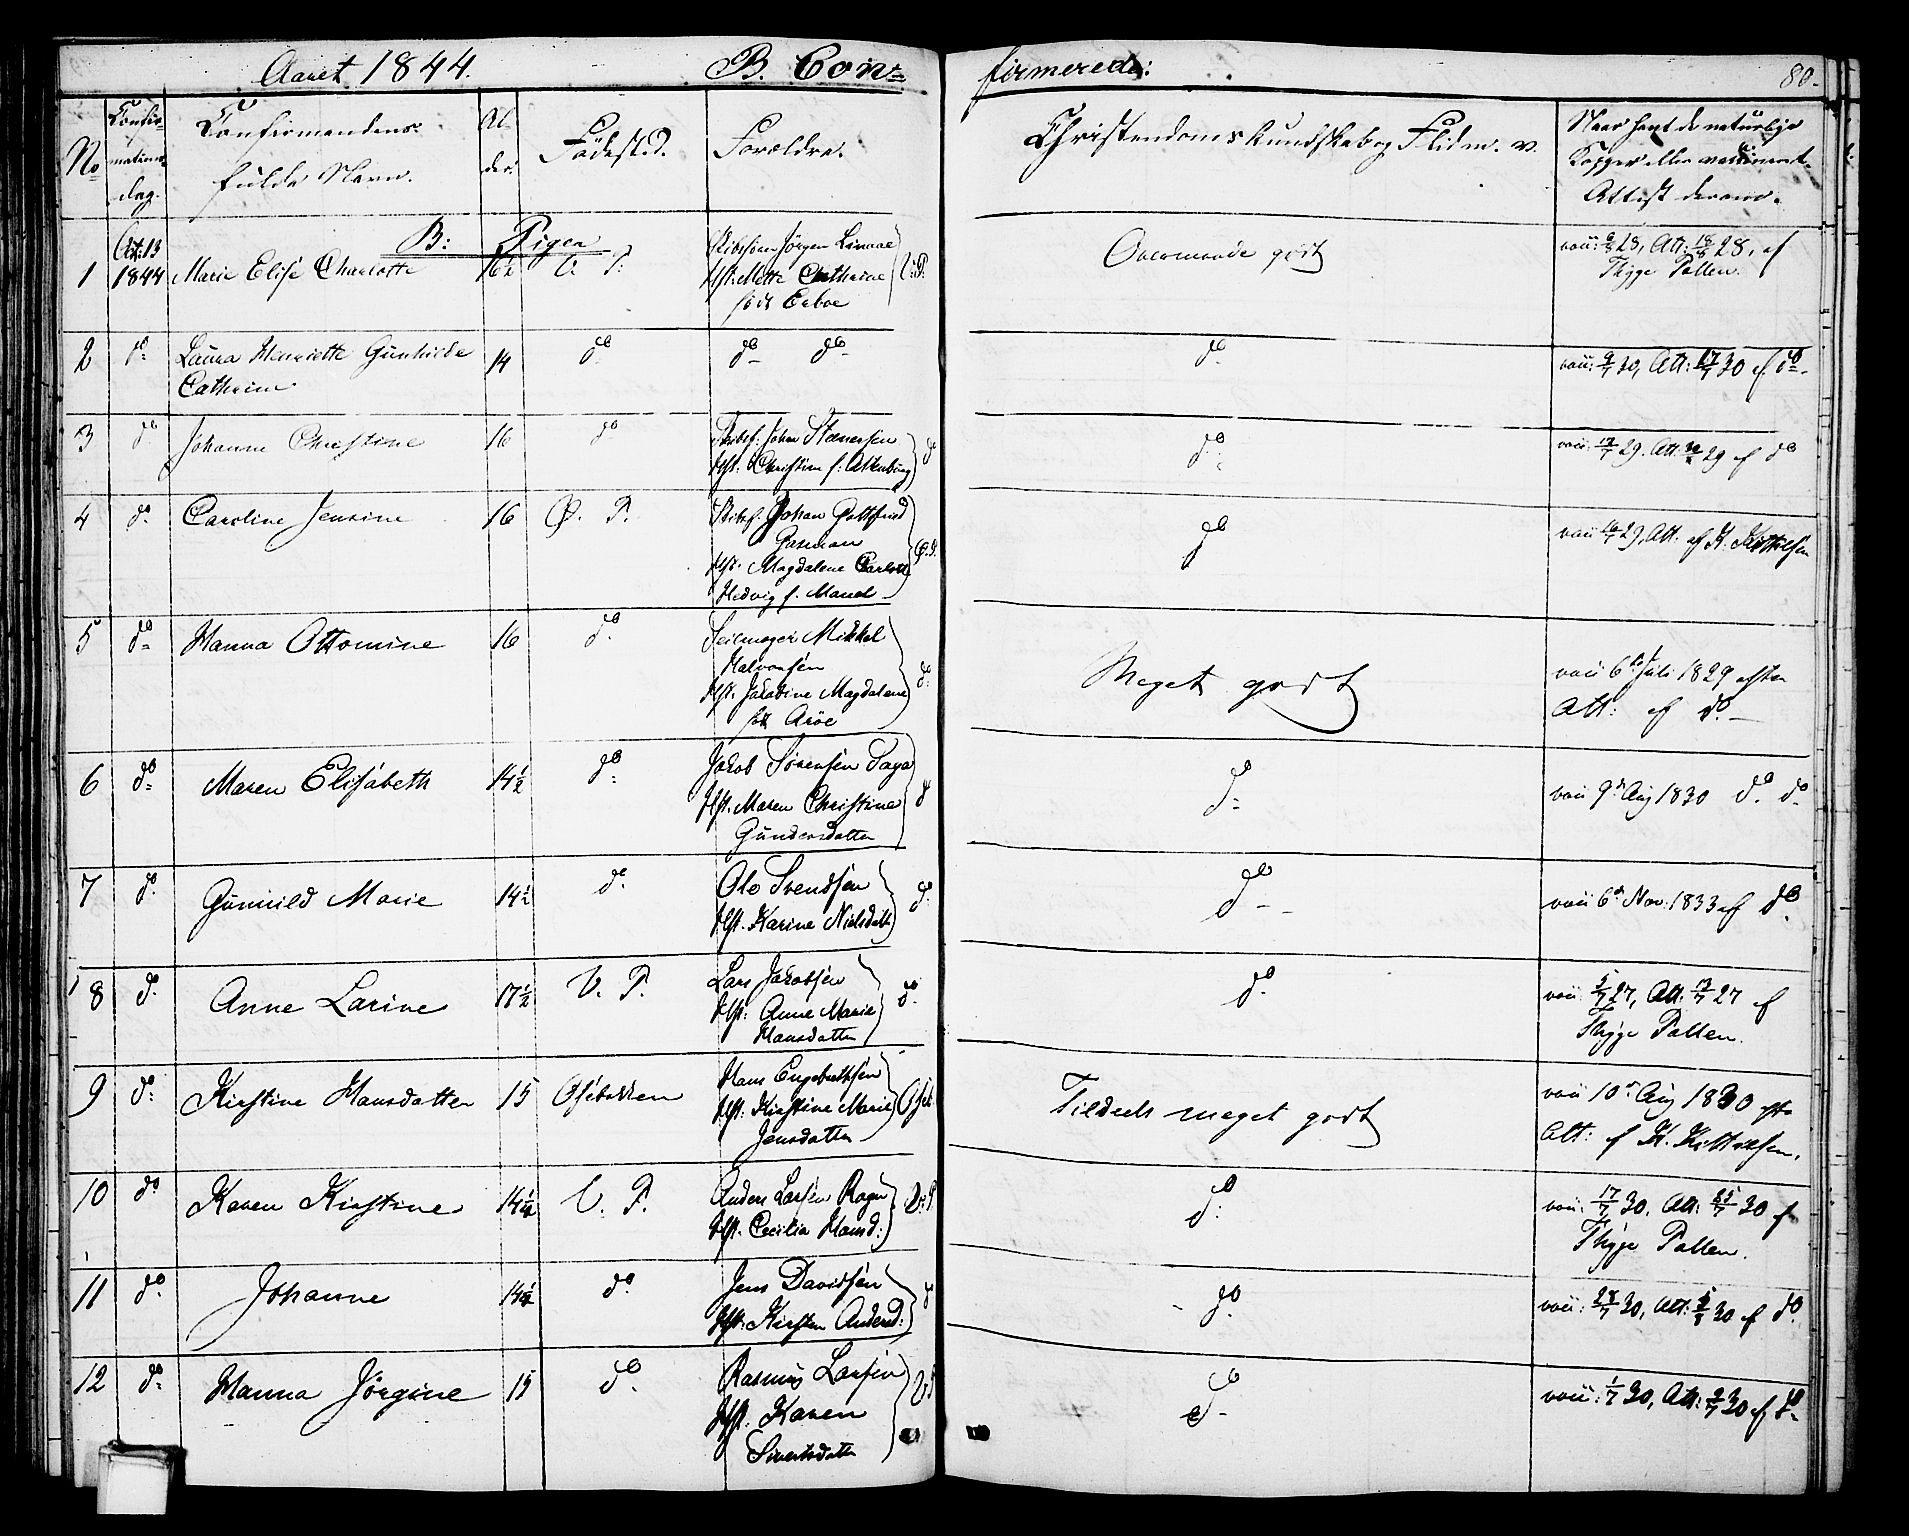 Aaret 1844. B. Con- firmerede: 80.
No Confir- mations- dag. Confirmandens fulde Navn. Al- der. Fødested. Forældre. Christendoms Kundskab og Flid m. v. Naar havt de naturlige Kopper eller vaccineret. Attest derom.
B: Piger
1 Oct. 13 1844 Marie Elise Charlotte 16½ V. P. Skibsfører Jørgen Linaae
Hst. Mette Cathrine
født Erboe V. P. Overmaade godt vac: 6/8 28, Att: 18/8 28, af
Thyge Pallen.
2 do Laura Henriette Gunhilde
Cathrine 14 do do do do vac: 9/7 30, Att: 17/7 30 af do
3 do Johanne Christine 16 do Skibsf. Johan Stenersen
Hst. Christine f. Altenburg do do vac: 12/7 29. Att: 29 af do
4 do Caroline Jensine 16 Ø. P. Skibsf. Johan Gottfried
Garman
Hst. Magdalene Carlotte
Hedvig f. Mandt Ø. P. do vac 16/7 29, Att. af K. Kittilsen
5 do Hanna Ottomine 16 do Seilmager Mikkel
Halvorsen
Hst. Jakobine Magdalene
født Arøe do Meget godt vac 6te Juli 1829 efter
Att: af do
6 do Maren Elisabeth 14½ do Jakob Sørensen Saga
Hst. Maren Christine
Gundersdatter do do vac 9de Aug 1830 do do
7 do Gunnild Marie 14½ do Ole Svendsen
Hst. Karine Nielsdatter do do vac 6te Nov. 1833 af do
8 do Anne Larine 17½ V. P. Lars Jakobsen
Hst: Anne Marie
Hansdatter do do vac: 5/7 27, Att: 12/7 27 af
Thyge Pallen.
9 do Kirstine Hansdatter 15 Osebakken Hans Engebrethsen
Hst: Kirstine Marie
Jensdatter Oseb. Tildeels meget godt vac 10de Aug 1830 efter
Att: af K. Kittilsen.
10 do Karen Kirstine 14½ V. P. Anders Larsen Ragn
Hst. Cecilia Hansd: V. P. do vac: 17/7 30. Att: 25/7 30 af
Thyge Pallen.
11 do Johanne 14½ do Jens Davidsen
Hst. Kirsten Andersd: do do vac: 28/7 30, Att: 30 af do
12 do Hanna Jørgine 15 do Rasmus Larsen
Hst. Karen
Sivertsdatter V. P. do vac: 1/7 30, Att: 30 af do